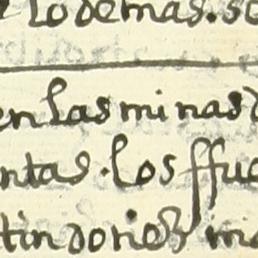 lo demas. so
en las minas d
ntas. los ffue
tindories mi